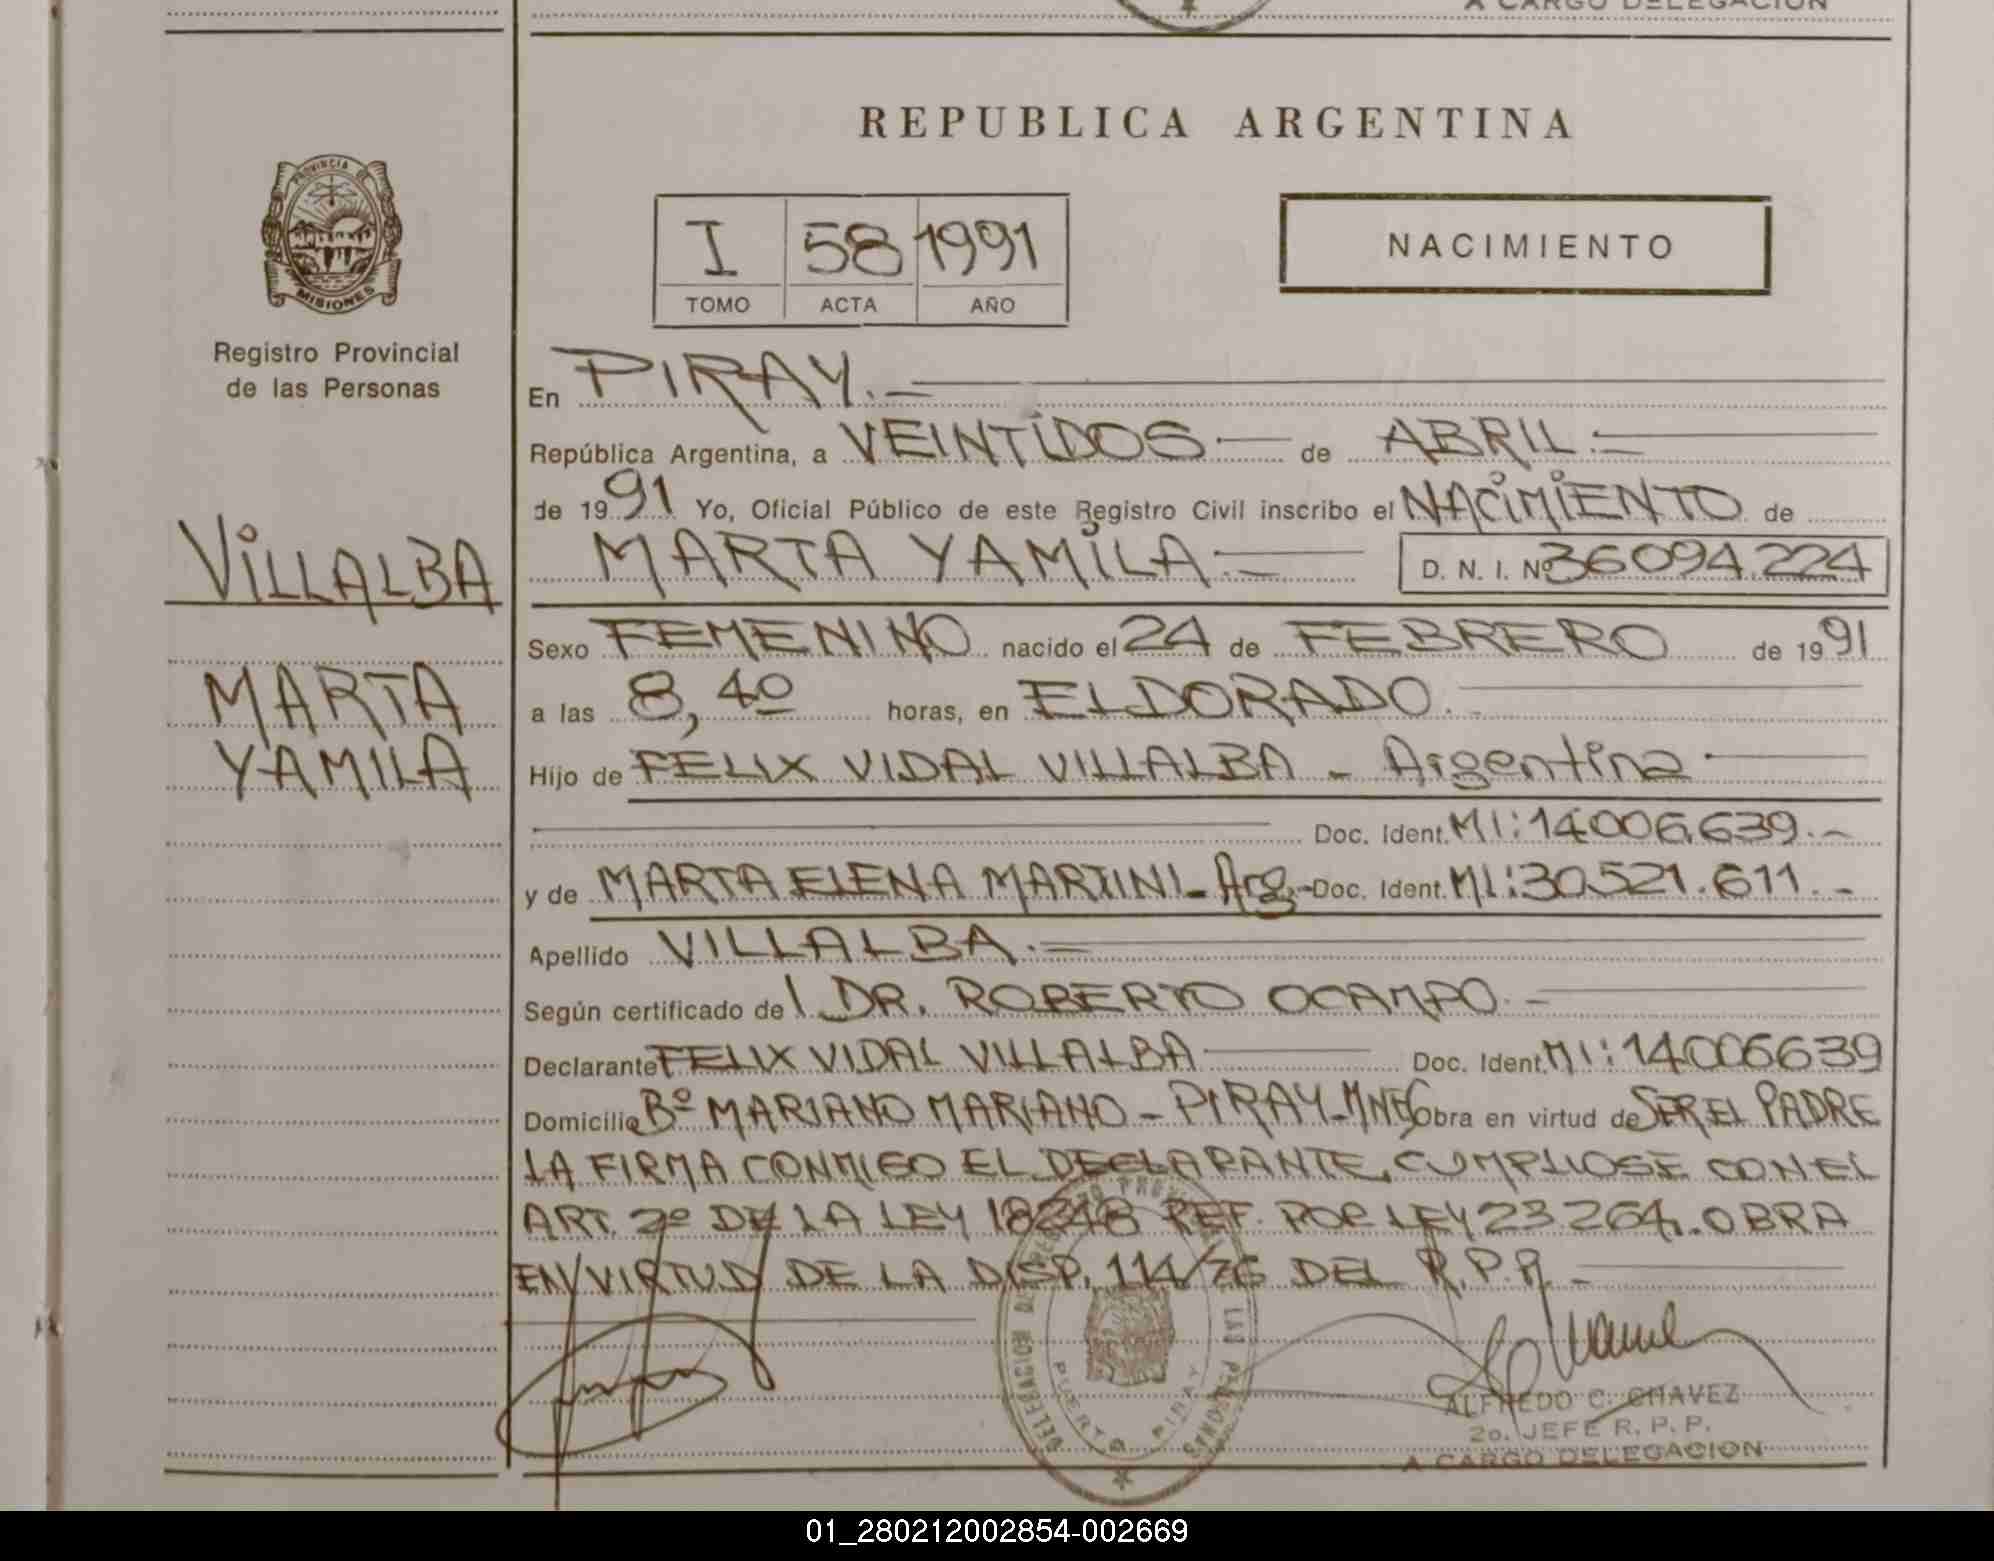 A CARGO DELEGACION
REPUBLICA ARGENTINA
PROVINCIA DE
MISIONES
Registro Provincial
de las Personas
I 58 1991
TOMO ACTA AÑO
NACIMIENTO
En PIRAY.-
República Argentina, a VEINTIDOS de ABRIL.-
de 1991 Yo, Oficial Público de este Registro Civil inscribo el NACIMIENTO de
VILLALBA
MARTA YAMILA.- D. N. I. Nº 36094.224
Sexo FEMENINO nacido el 24 de FEBRERO de 1991
MARTA
a las 8,40 horas, en ELDORADO.-
YAMILA
Hijo de FELIX VIDAL VILLALBA - Argentina
Doc. Ident. MI: 14006.639.-
y de MARTA ELENA MARTINI - Arg.- Doc. Ident. MI: 30.521.611.-
Apellido VILLALBA.-
Según certificado de l DR. ROBERTO OCAMPO.-
Declarante FELIX VIDAL VILLALBA Doc. Ident. MI: 14006639
Domicilio Bº MARIANO MARIANO - PIRAY - MNES Obra en virtud de SER EL PADRE
LA FIRMA CONMIGO EL DECLARANTE, CUMPLIOSE CON EL
ART. 2º DE LA LEY 18248 REF. POR LEY 23.264. OBRA
EN VIRTUD DE LA DISP. 114/76 DEL R.P.P. -
DELEGACION DEL REGISTRO PROVINCIAL DE LAS PERSONAS
PUERTO PIRAY
ALFREDO C. CHAVEZ
2o. JEFE R. P. P.
A CARGO DELEGACION
01_280212002854-002669